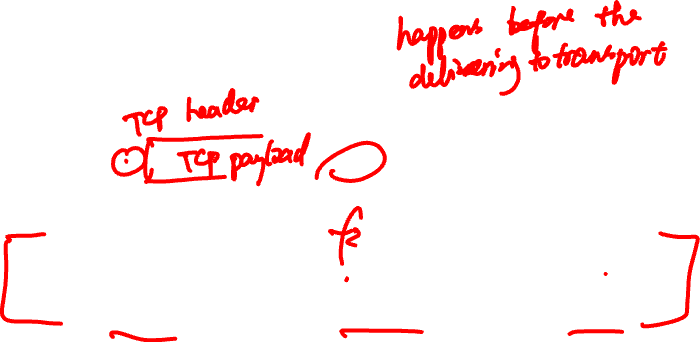 happens before the
delivering to transport
TCP header
TCP payload